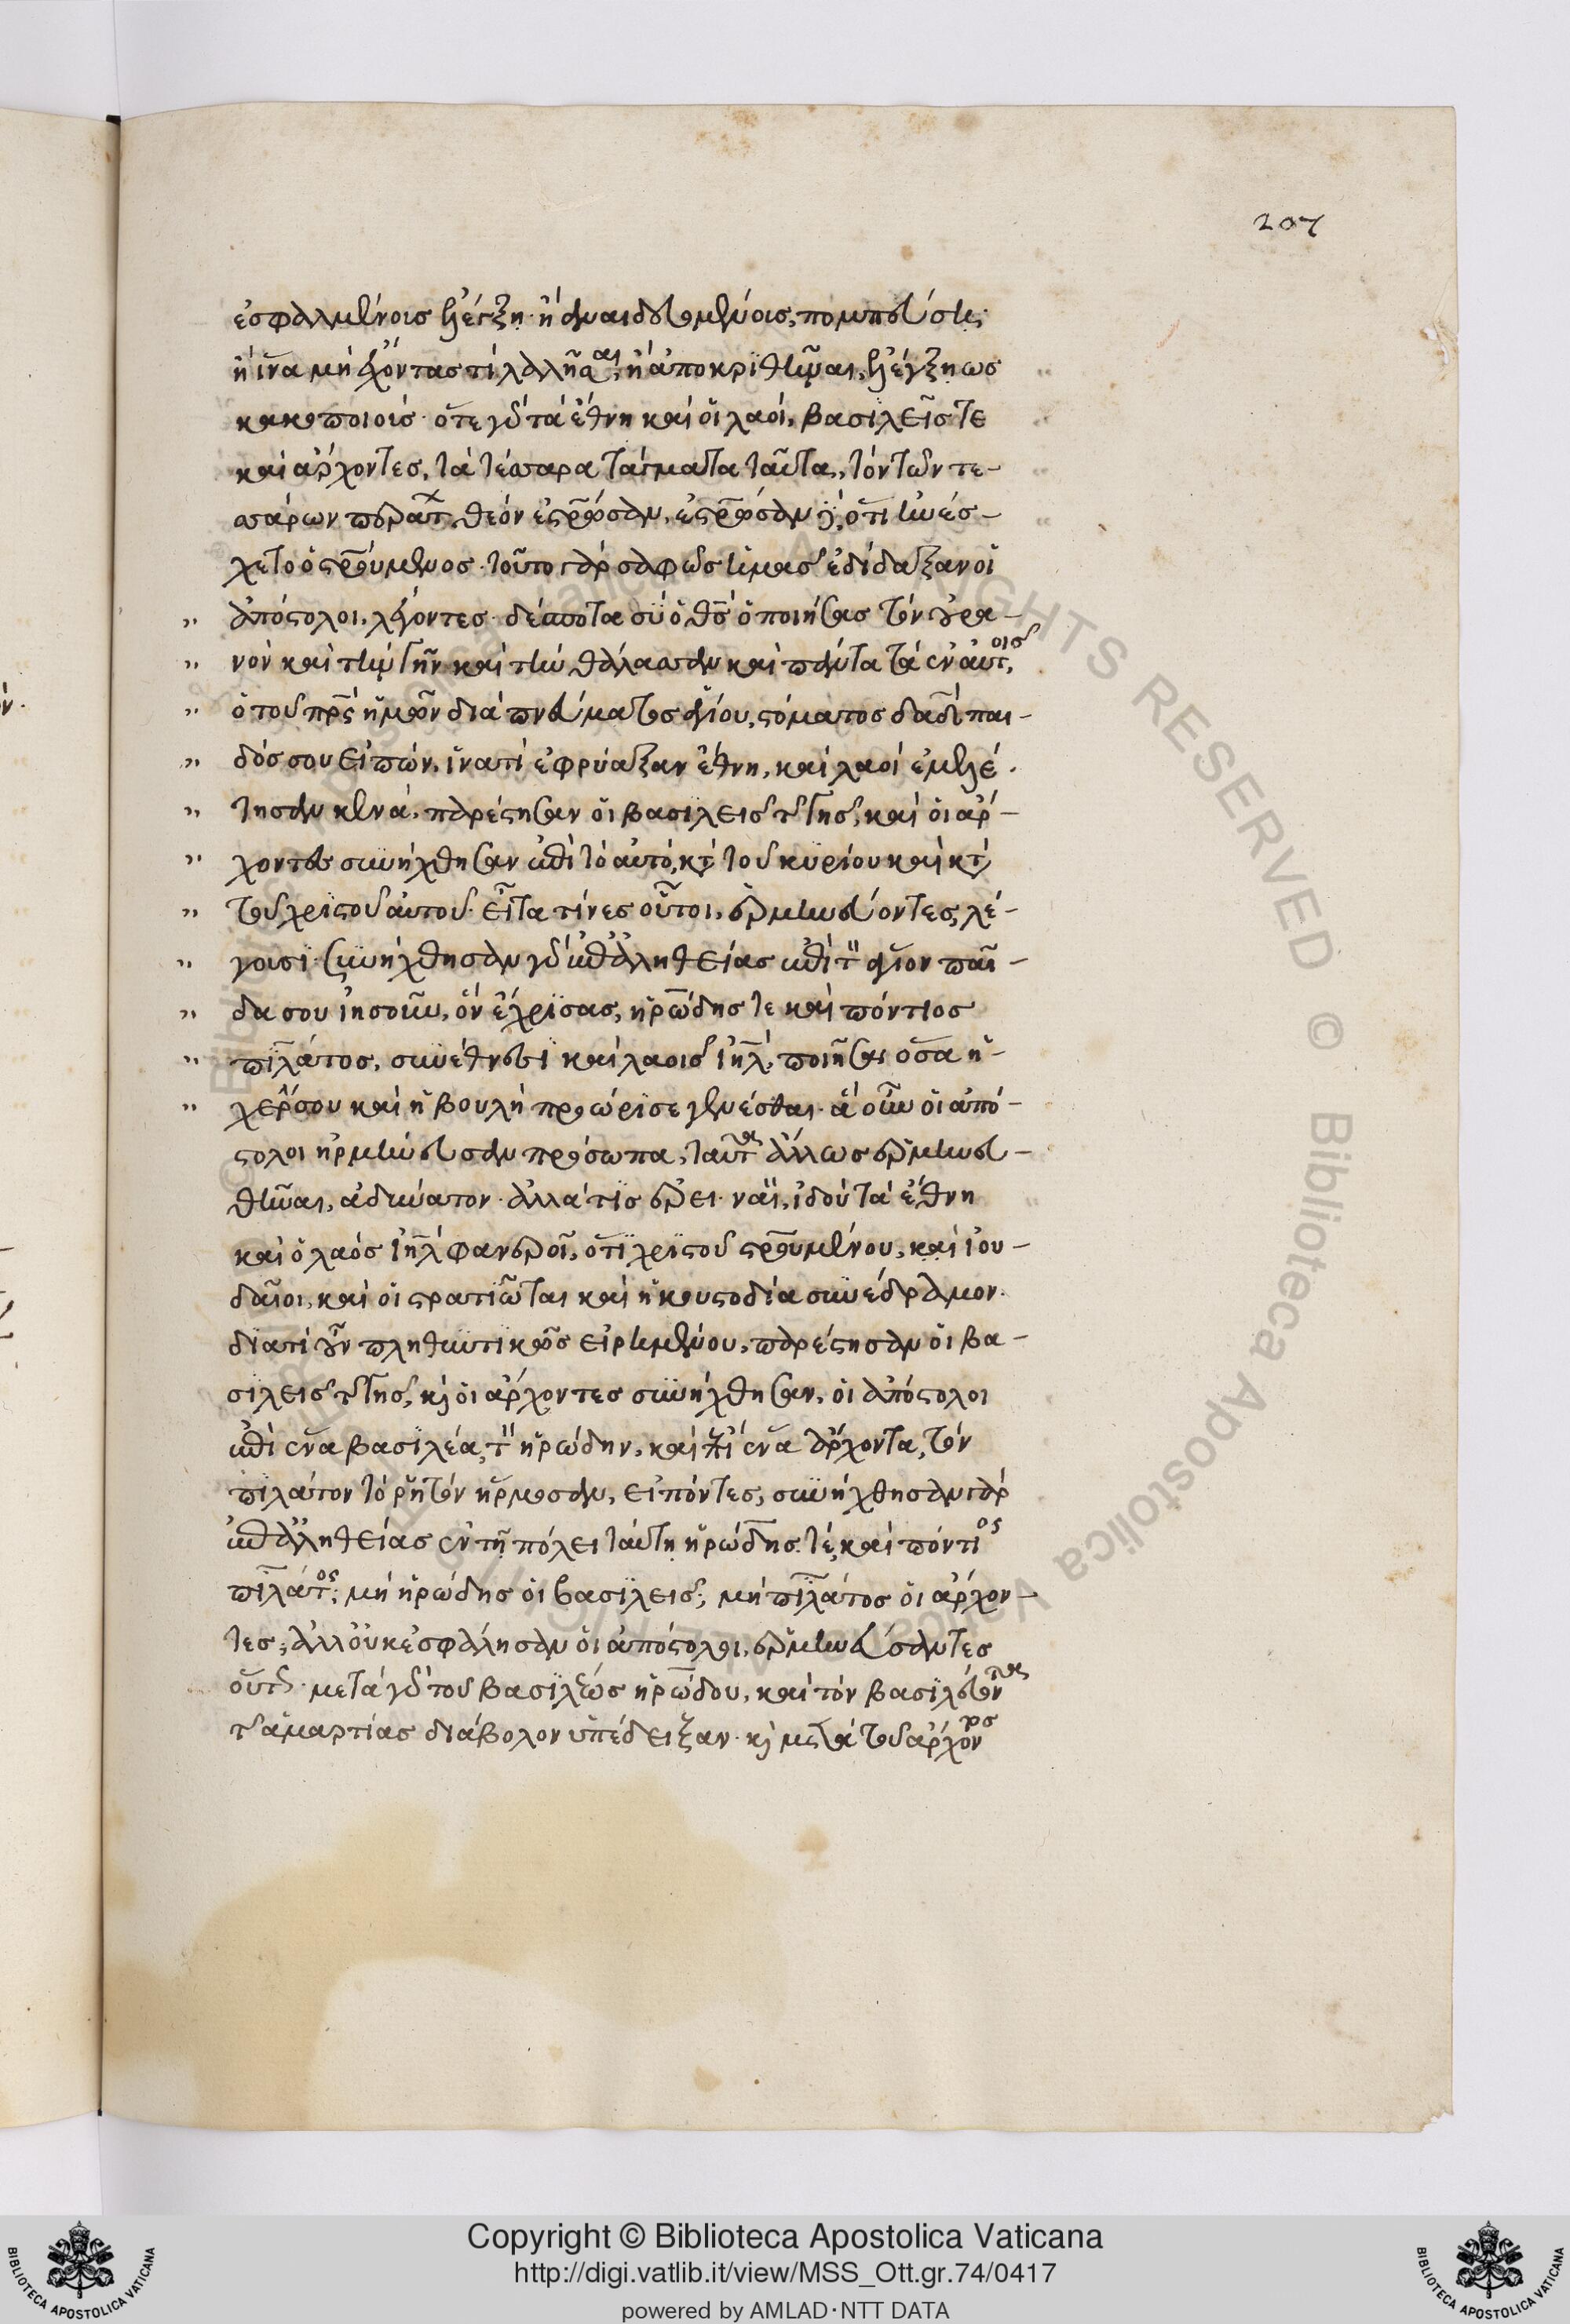 207
ἐσφαλμένοις ἐλέγξη. ἢ ἀναιδευομένοις, πομπεύσης;
ἢ ἵνα μὴ ἔχοντας τί λαλῆσαι, ἢ ἀποκριθῆναι, ἐλέγξη ὡς
κακοποιούς. ὅτε γὰρ τὰ ἔθνη καὶ οἱ λαοὶ, βασιλεῖς τε
καὶ ἄρχοντες, τὰ τέσσαρα τάγματα ταῦτα, τὸν τῶν τε-
σσάρων περάτων θεὸν ἐσταύρωσαν, ἐσταύρωσαν δὲ, ὅτι ἠνέσ-
χετο ὁ σταυρούμενος. τοῦτο γὰρ σαφῶς ἡμᾶς ἐδίδαξαν οἱ
" ἀπόστολοι, λέγοντες. δέσποτα σὺ ὁ θς ὁ ποιήσας τὸν οὐρα-
" νὸν καὶ τὴν γῆν καὶ τὴν θάλασσαν καὶ πάντα τὰ ἐν αὐτοῖς,
" ὁ τοῦ πρς ἡμῶν διὰ πνεύματος ἁγίου, στόματος δαδ παι-
" δός σου εἰπών, ἱνατί ἐφρύαξαν ἔθνη, καὶ λαοὶ ἐμελέ
" τησαν κενά, παρέστησαν οἱ βασιλεῖς τῆς γῆς, καὶ οἱ ἄρ-
" χοντες συνήχθησαν ἐπὶ τὸ αὐτό, κατὰ τοῦ κυρίου καὶ κατὰ
" τοῦ χριστοῦ αὐτοῦ. εἶτα τίνες οὗτοι, ἑρμηνεύοντες λέ-
" γουσι. συνήχθησαν γὰρ ἐπ' ἀληθείας ἐπὶ τὸν ἅγιον παῖ-
" δα σου ἰησοῦν, ὃν ἔχρισας, ἡρώδης τε καὶ πόντιος
" πιλάτος, σὺν ἔθνεσι καὶ λαοῖς ἰηλ, ποιῆσαι ὅσα ἡ
" χείρ σου καὶ ἡ βουλὴ προώρισε γενέσθαι. ἃ οὖν οἱ ἀπό-
στολοι ἡρμήνευσαν πρόσωπα, ταῦτα ἄλλως ἑρμηνευ-
θῆναι, ἀδύνατον. ἀλλά τίς ἐρεῖ. ναὶ, ἰδοὺ τὰ ἔθνη
καὶ ὁ λαὸς ἰηλ φανεροῖ, ὅτι χριστοῦ σταυρουμένου, καὶ ἰου-
δαῖοι, καὶ οἱ στρατιῶται καὶ ἡ κουστοδία συνέδραμον.
διατί οὖν πληθυντικῶς εἰρημένου, παρέστησαν οἱ βα-
σιλεῖς τῆς γῆς, καὶ οἱ ἄρχοντες συνήχθησαν, οἱ ἀπόστολοι
ἐπὶ ἕνα βασιλέα, τὸν ἡρώδην, καὶ ἐπὶ ἕνα ἄρχοντα, τὸν
πιλάτον τὸ ῥητὸν ἥρμοσαν, εἰπόντες, συνήχθησαν γὰρ
ἐπ' ἀληθείας ἐν τῇ πόλει ταύτη ἡρώδης τὲ, καὶ πόντιος
πιλάτος; μὴ ἡρώδης οἱ βασιλεῖς; μὴ πιλάτος οἱ ἄρχον-
τες; ἀλλ' οὐκ ἐσφάλησαν οἱ ἀπόστολοι, ἑρμηνεύσαντες
οὕτως. μετὰ γὰρ τοῦ βασιλέως ἡρώδου, καὶ τὸν βασιλεύοντα
τῆς ἁμαρτίας διάβολον ὑπέδειξαν. καὶ μετὰ τοῦ ἄρχοντος
Copyright © Biblioteca Apostolica Vaticana
http://digi.vatlib.it/view/MSS_Ott.gr.74/0417
powered by AMLAD·NTT DATA